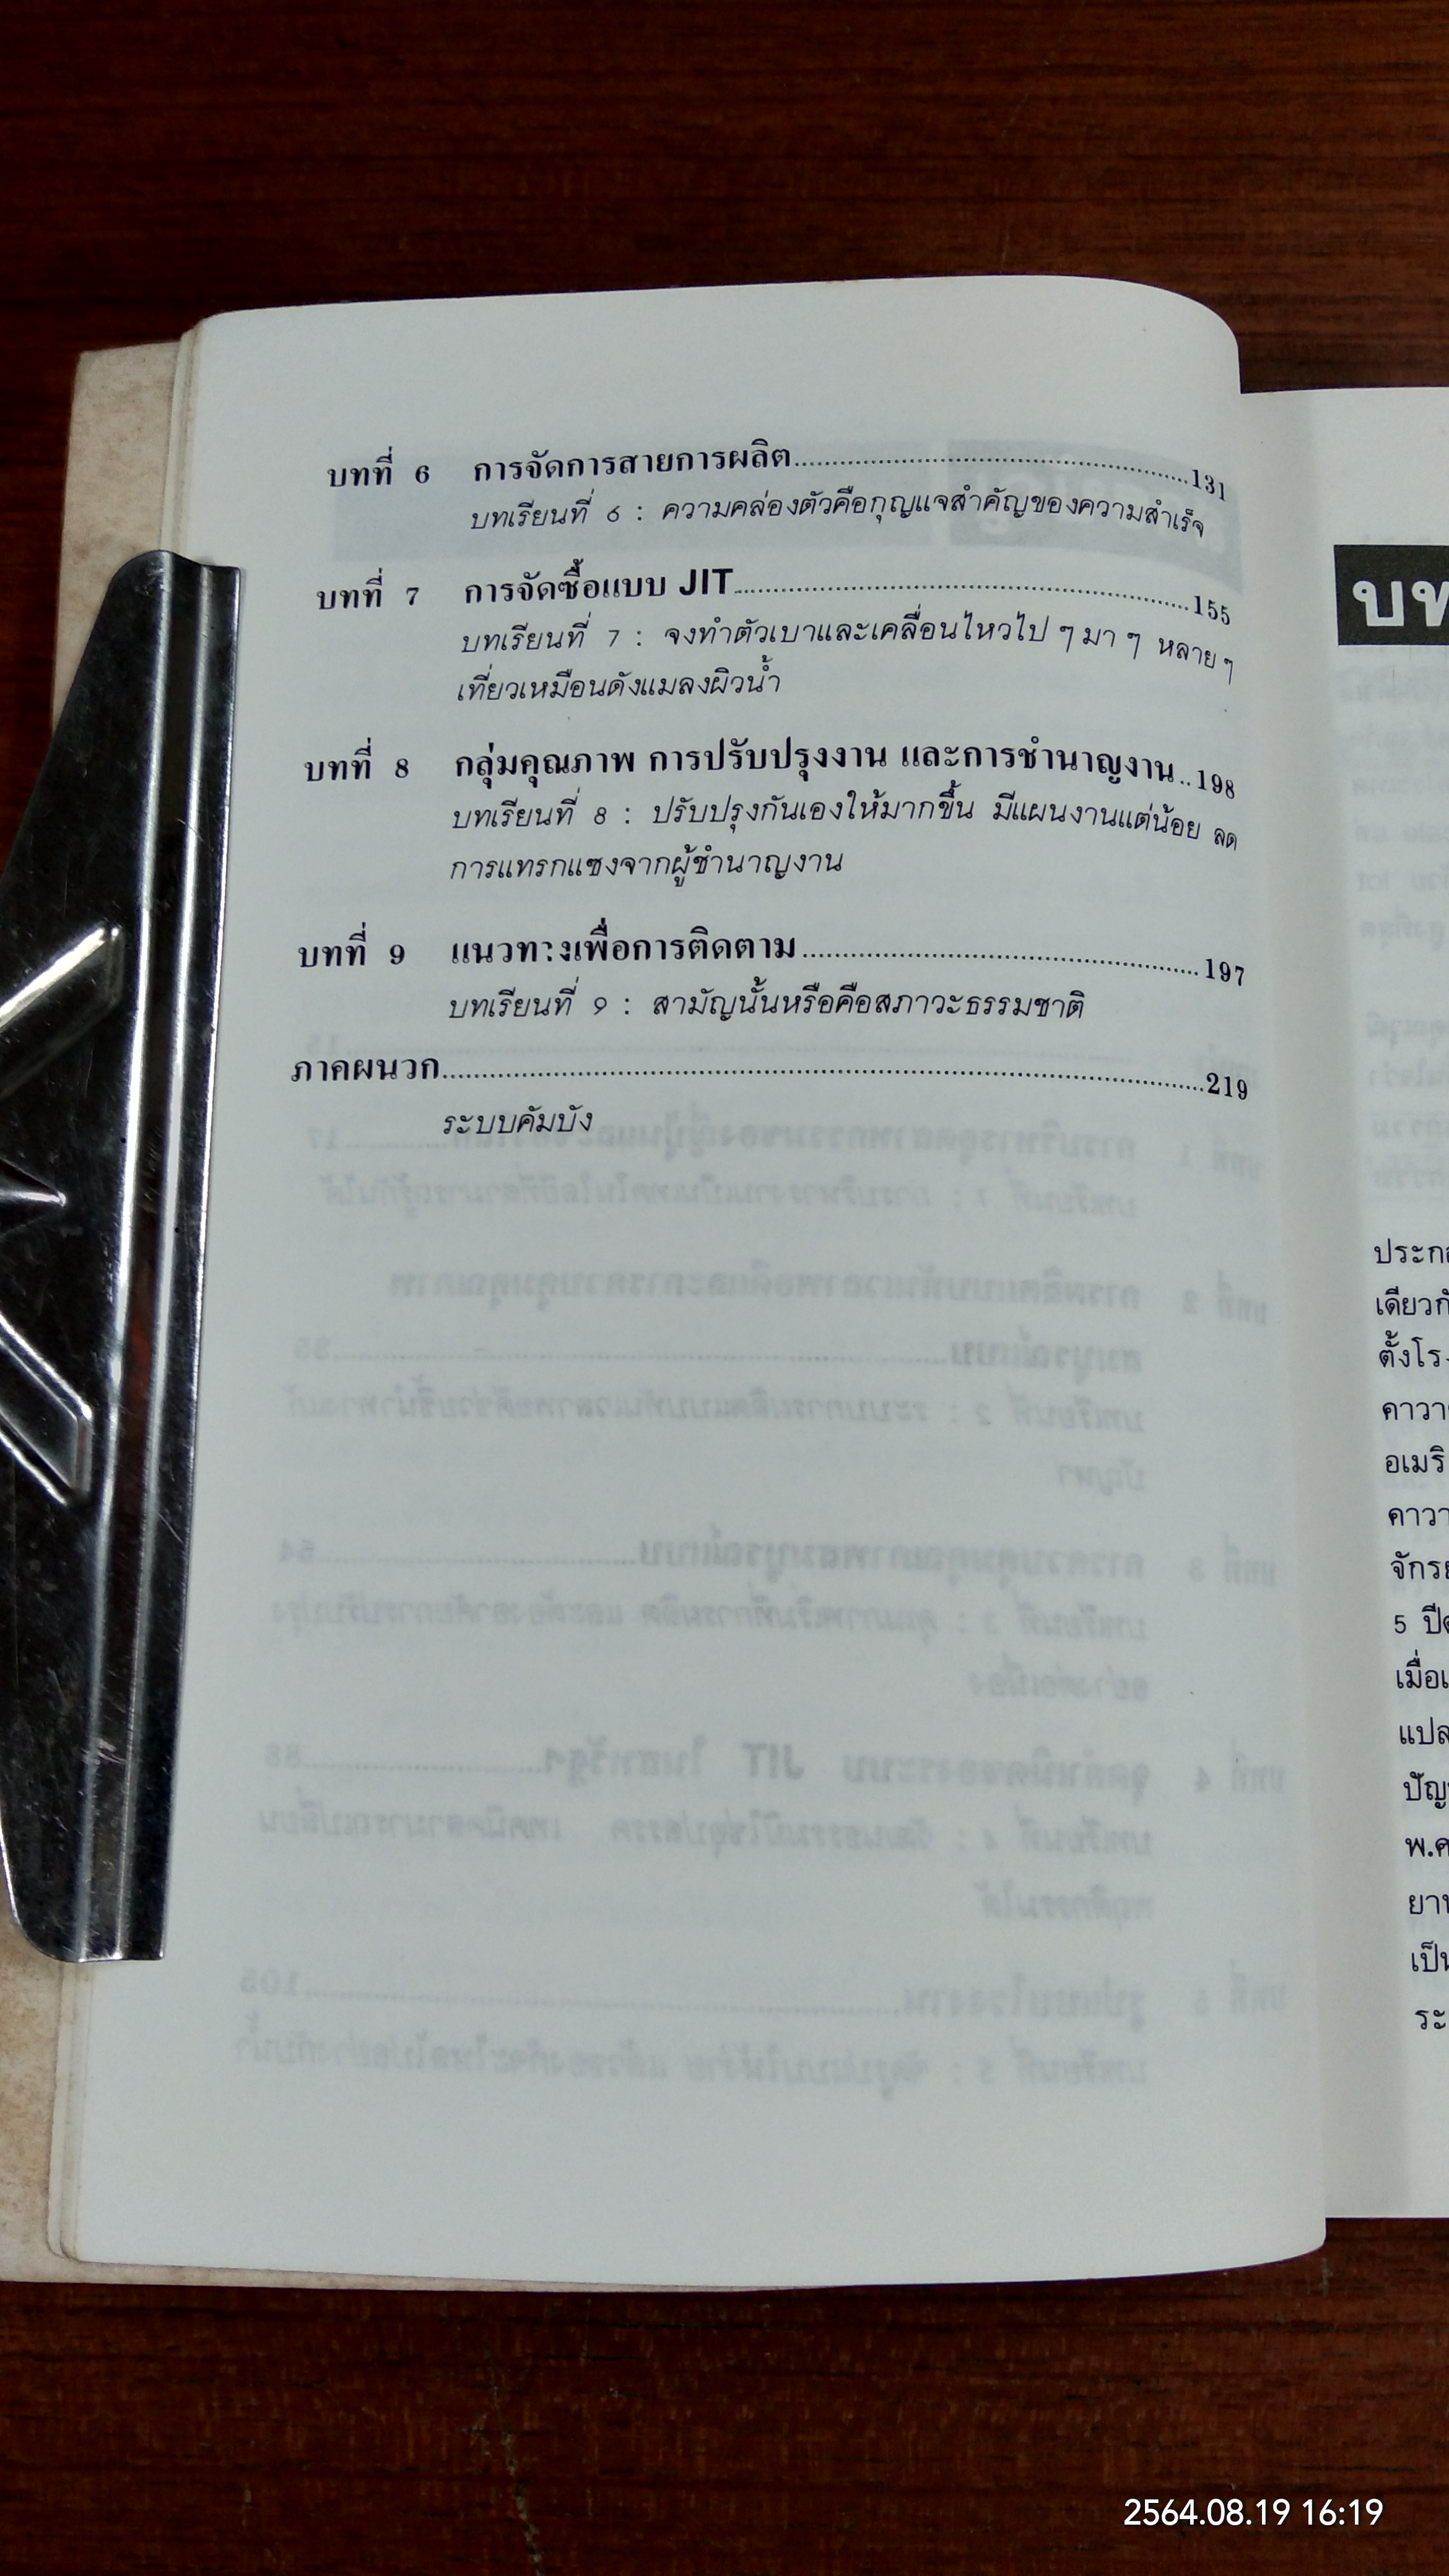 บทที่ 6 การจัดการสายการผลิต....................131
บทเรียนที่ 6 : ความคล่องตัวคือกุญแจสำคัญของความสำเร็จ
บทที่ 7 การจัดซื้อแบบ JIT....................155
บทเรียนที่ 7 : จงทำตัวเบาและเคลื่อนไหวไป ๆ มา ๆ หลาย ๆ
เที่ยวเหมือนดังแมลงผิวน้ำ
บทที่ 8 กลุ่มคุณภาพ การปรับปรุงงาน และการชำนาญงาน..198
บทเรียนที่ 8 : ปรับปรุงกันเองให้มากขึ้น มีแผนงานแต่น้อย ลด
การแทรกแซงจากผู้ชำนาญงาน
บทที่ 9 แนวทางเพื่อการติดตาม....................197
บทเรียนที่ 9 : สามัญนั้นหรือคือสภาวะธรรมชาติ
ภาคผนวก....................219
ระบบคัมบัง
บท
ประกอ
เดียวกั
ตั้งโรง
คาวา
อเมริ
คาวา
จักรย
5 ปี
เมื่อเ
แปล
ปัญ
พ.ศ
ยาน
เป็น
ระ
2564.08.19 16:19